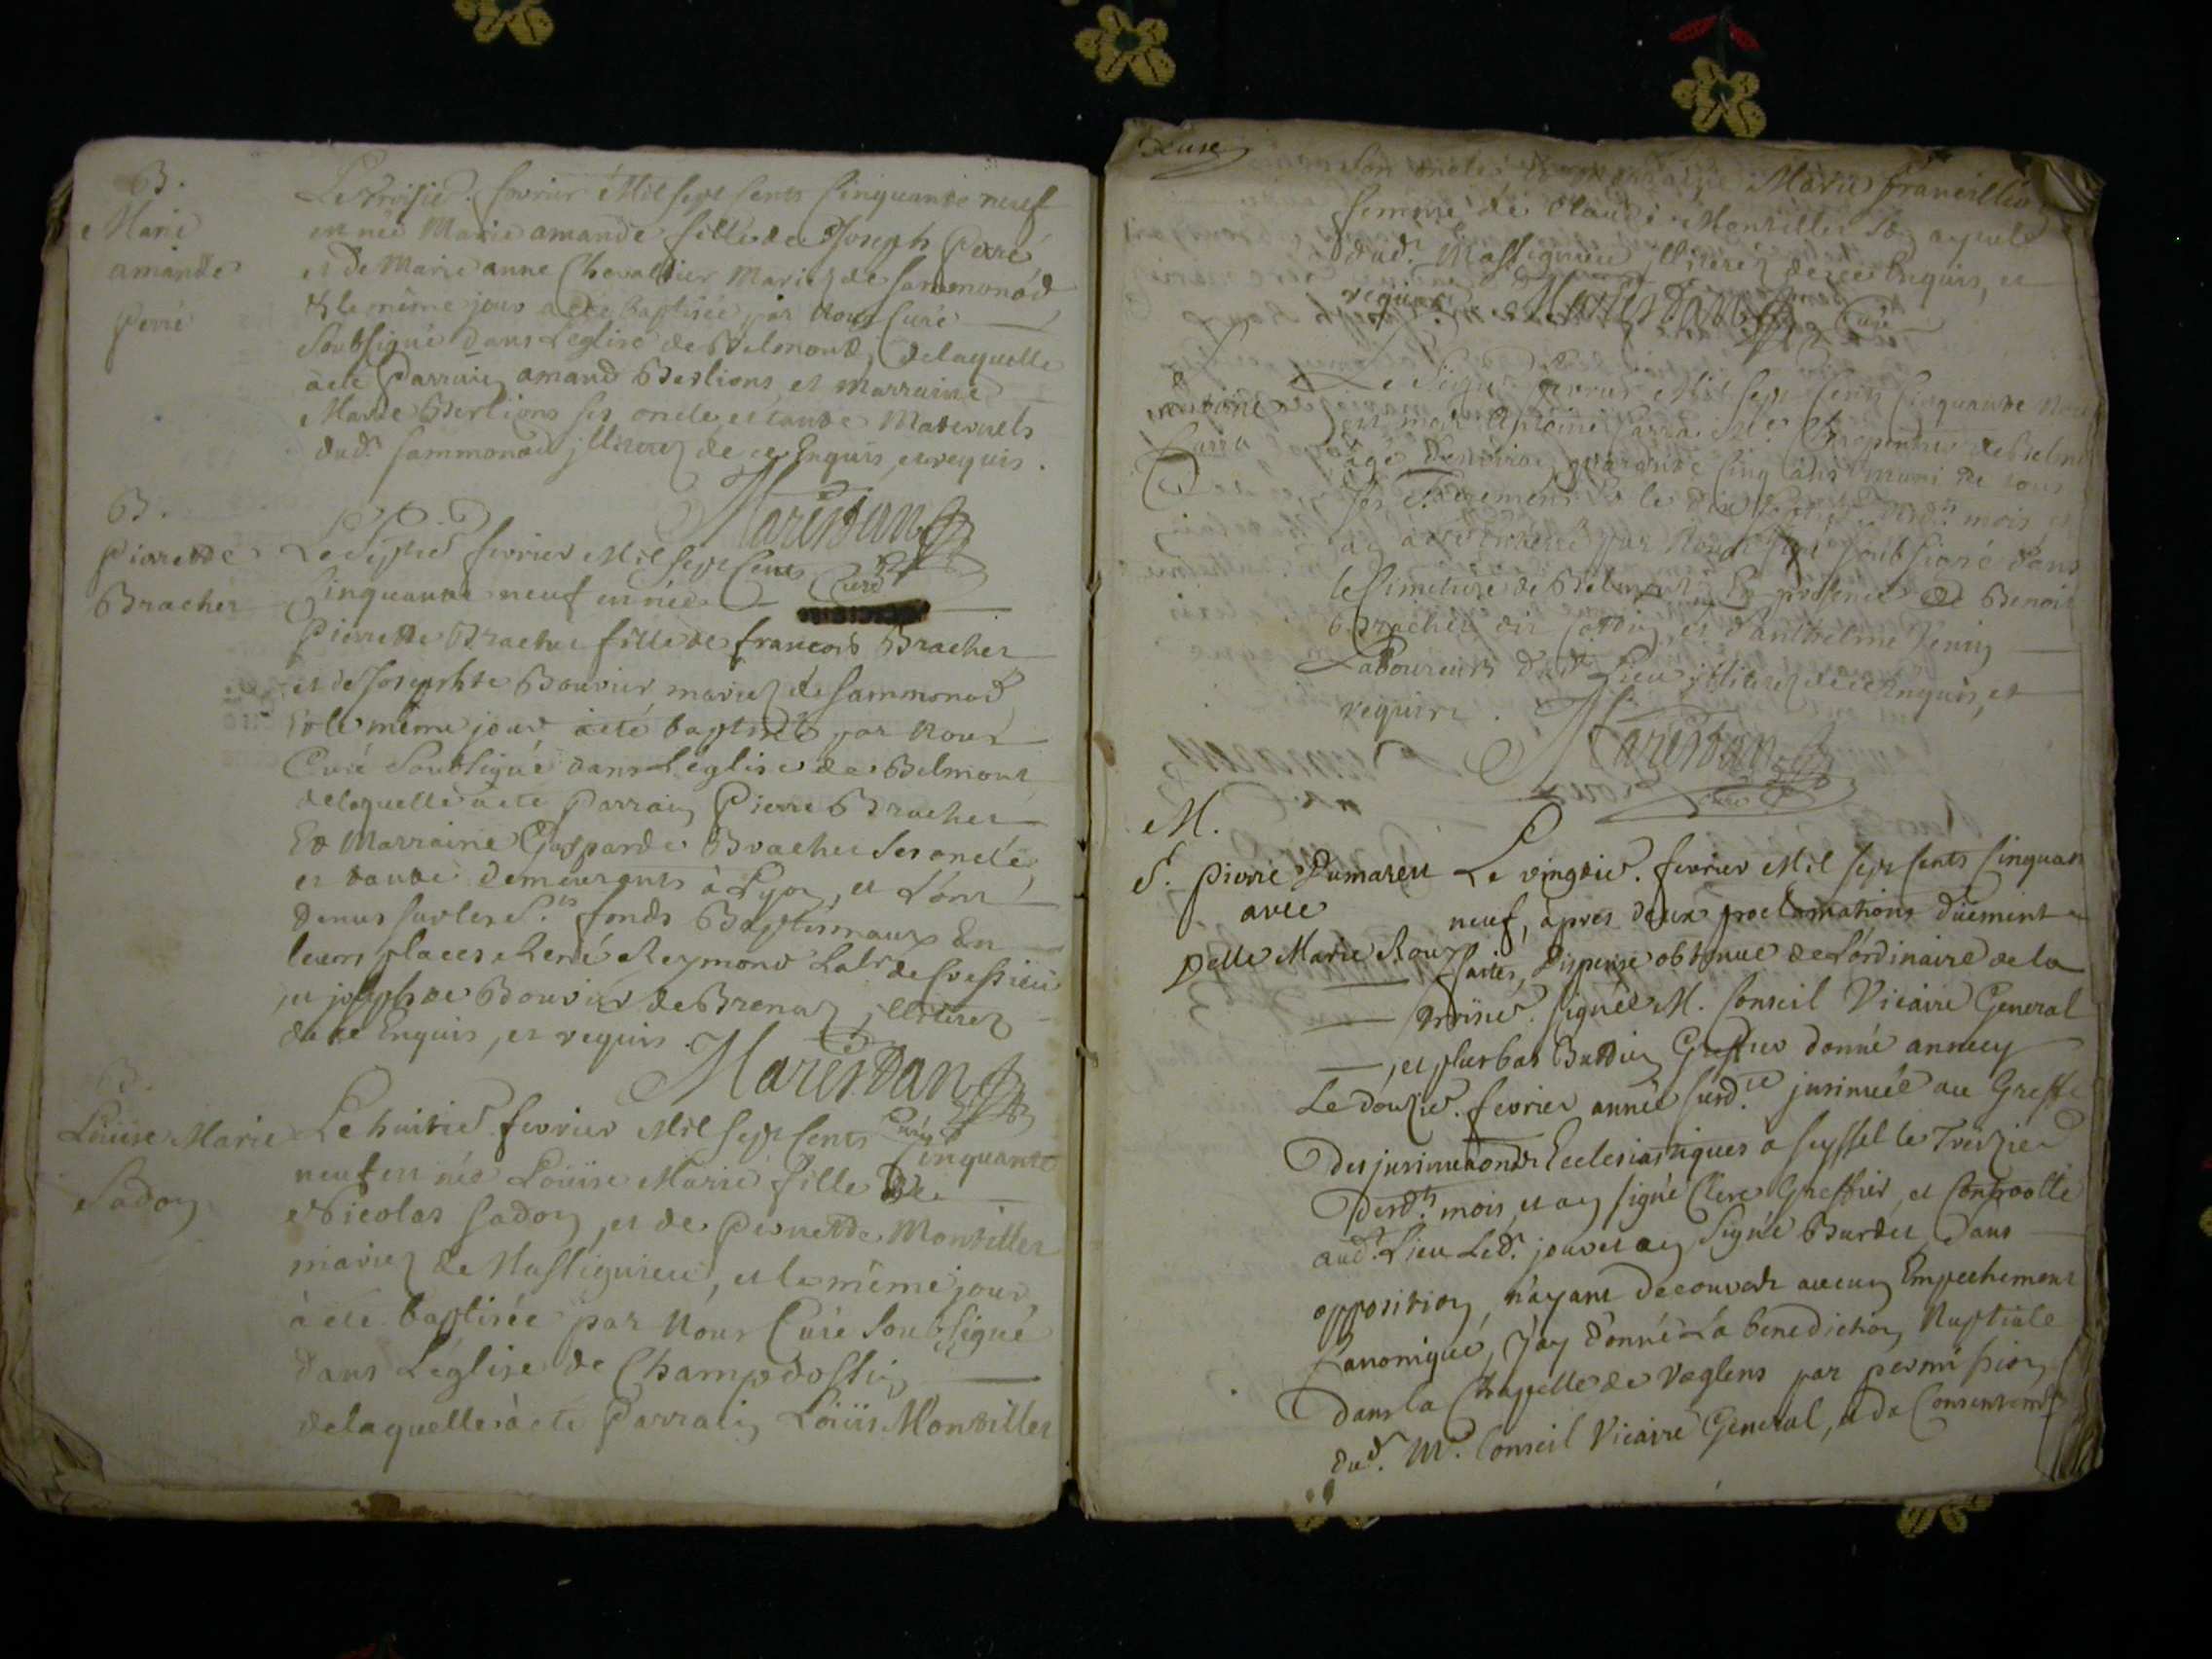 B.
Marie
amande
Perré
Le troisie. fevrier Mil sept cents Cinquante neuf
est née Marie amande fille de Joseph Perré
et de Marie anne Chevallier Mariez de Sammonod
& le même jour a été baptisée par Nous Curé
Soubsigné dans Leglise de Belmont, de laquelle
a été Parrain amand Berlions, et Marraine
Marie Berlions ses oncle, et tante Maternels
dud. Sammonod jlliterez de ce Enquis, et requis.
Marestan
Curé
B.
Pierrette
Bracher
Le Septie fevrier Mil sept Cents
Cinquante neuf est née
Pierrette Bracher fille de francois Bracher
et de Josephte Bouvier mariez de Sammonod
& le même jour a été baptisée par Nous
Curé Soubsigné dans Léglise de Belmont
de laquelle a été Parrain Pierre Bracher
Et Marraine Gasparde Bracher Ses oncle,
et tante demeurants à Lyon, et L'ont
tenus sur les S.ts fonds Baptismaux En
leurs places René Reymond Lab.r de Cressieu
et josephte Bouvier de Brenaz jlliterez
de ce Enquis, et requis.
Marestan
Curé
B.
Loüise Marie
Sadon
Le huitie fevrier Mil sept Cents
Cinquante
neuf est née Loüise Marie fille de
Nicolas Sadon, et de Pernette Montillet
mariez de Massignieu, et le même jour
à été baptisée par Nous Curé Soubsigné
dans L'eglise de Champdossin
de laquelle à été Parrain Loüis Montillet
son oncle & Marraine Marie francillin
femme de Claude Montillet Son ayeule
dud. Massignieu jlliterez de ce Enquis, et
requis. Marestan
Curé
S
antoine
Carra
Le fevrier Mil sept Cents Cinquante
est mort Antoine Carra M.e de Belm
agé d'environ quarante Cinq ans muni de tous
Ses Sacrements & le dix dud. mois
a été par Nous Curé Soubsigné dans
le Cimetiere de Belmont, En presence de Benoit
Bracher dit et d'anthelme
Laboureurs dud. Lieu jlliterez de ce Enquis, et
requis.
Marestan
Curé
M.
S. Pierre Dumarest
avec
Delle Marie Roux
Le vingtie. fevrier Mil sept Cents Cinquan
neuf, àpres deux proclamations düement
faites, Dispense obtenue de L'ordinaire de la
troisie. signée M. Conseil Vicaire General
, et plus bas Burdin Greffier donné annecy
Le douzie. fevrier année susd.te jnsinuée au Greffe
Des jnsinuations Ecclesiastiques a Seyssel le Treizie
Desd.ts mois, et an signé Clerc Greffier, et Controollé
aud. Lieu Led. jour et an, Signé Burdet, Sans
opposition, n'ayant decouvert aucun Empechement
Canonique, J'ay donné La benediction Nuptiale
Dans la Chappelle de Veglens par permission
dud. Mr. Conseil Vicaire General, & du Consentemt